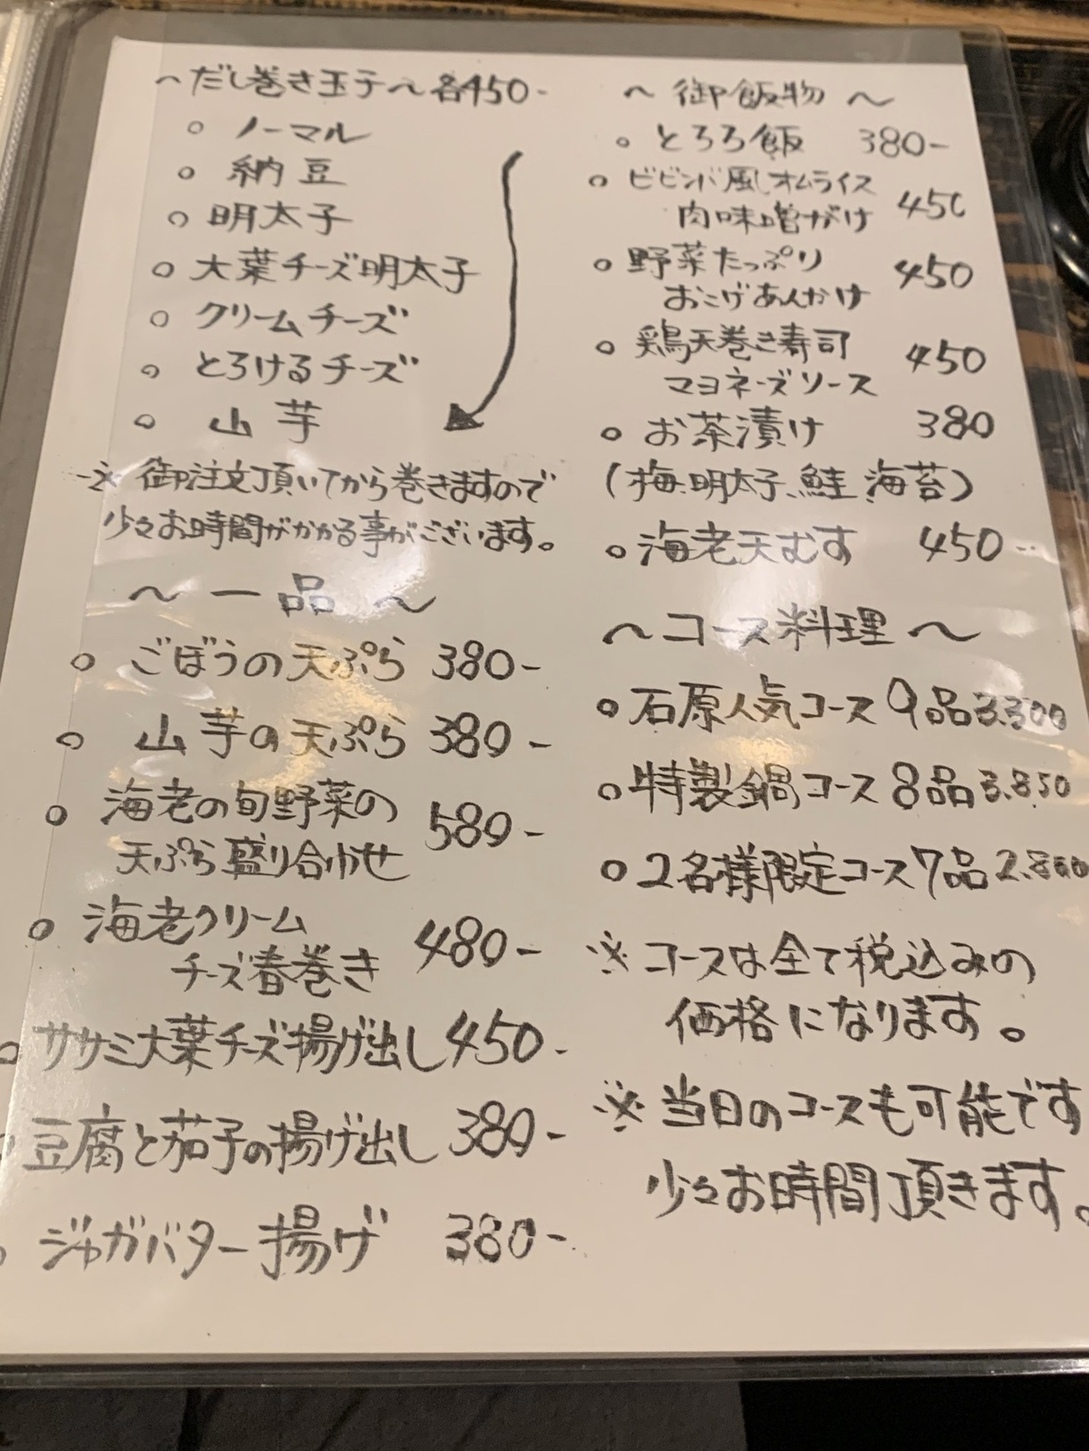 ～だし巻き玉子～各450-
○ ノーマル
○ 納豆
○ 明太子
○ 大葉チーズ明太子
○ クリームチーズ
○ とろけるチーズ
○ 山芋
※ 御注文頂いてから巻きますので
少々お時間がかかる事がございます。
～一品～
○ ごぼうの天ぷら 380-
○ 山芋の天ぷら 380-
○ 海老の旬野菜の
天ぷら盛り合わせ 580-
○ 海老クリーム
チーズ春巻き 480-
○ ササミ大葉チーズ揚げ出し 450-
豆腐と茄子の揚げ出し 380-
○ ジャガバター揚げ 380-
～御飯物～
○ とろろ飯 380-
○ ビビンバ風オムライス
肉味噌がけ 450
○ 野菜たっぷり
おこげあんかけ 450
○ 鶏天巻き寿司
マヨネーズソース 450
○ お茶漬け 380
(梅、明太子、鮭 海苔)
○ 海老天むす 450-
～コース料理～
○ 石原人気コース 9品3.300
○ 特製鍋コース 8品3.850
○ 2名様限定コース7品2.800
※ コースは全て税込みの
価格になります。
※ 当日のコースも可能です
少々お時間頂きます。